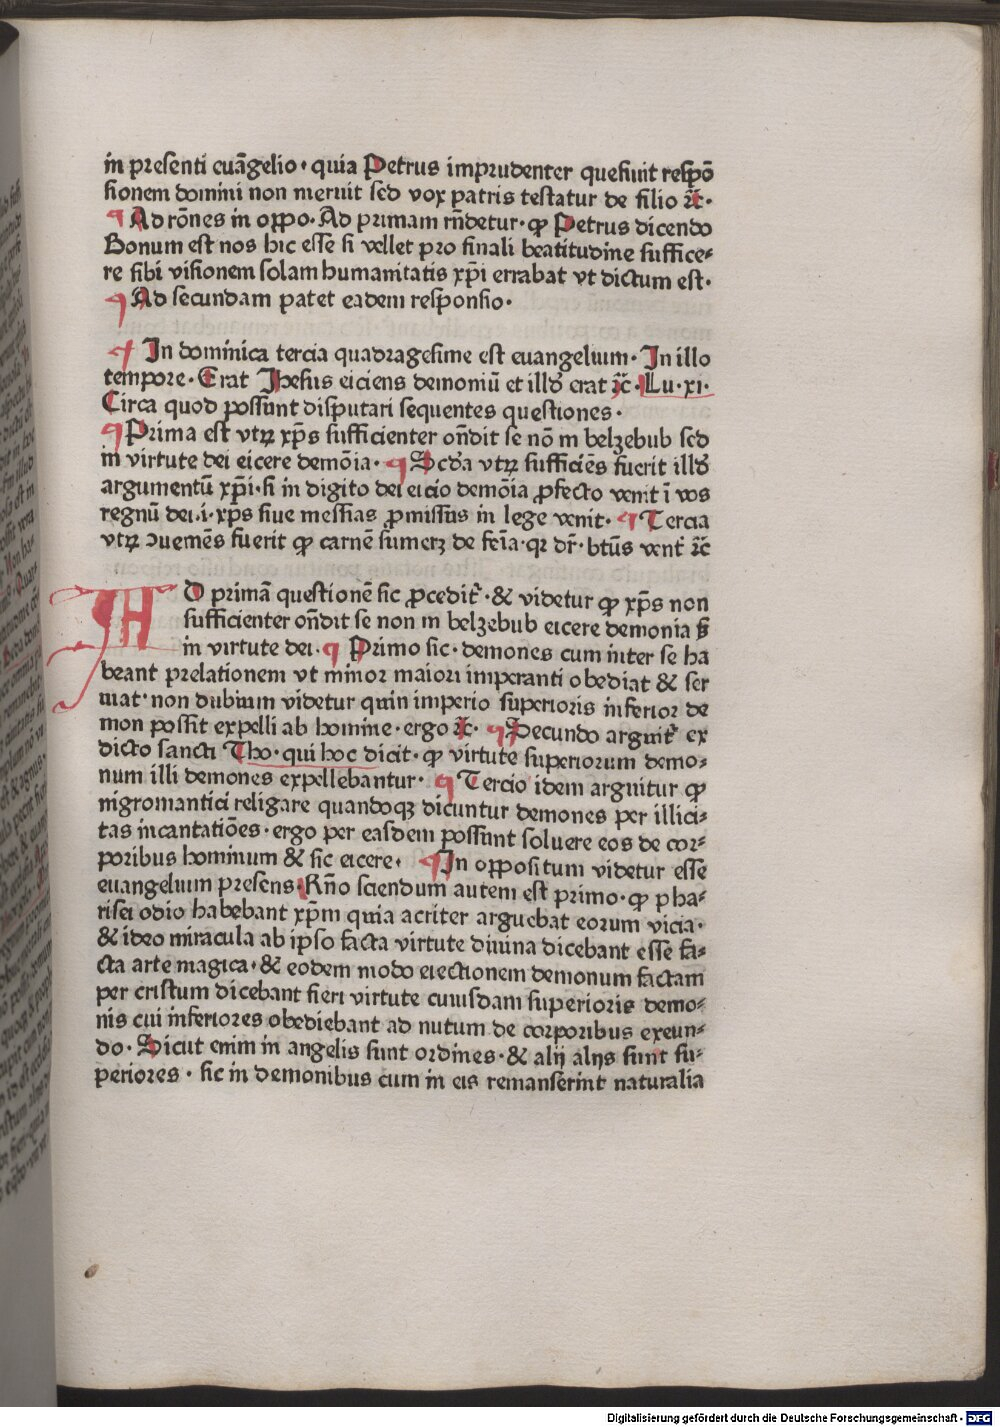 in presenti euãgelio · quia Petrus imprudenter quesiuit respõ
sionem domini non meruit sed vox patris testatur de filio ⁊c̃ ·
¶ Ad rõnes in oppo · Ad primam rñdetur · ꝙ Petrus dicendo
Bonum est nos hic esse si vellet pro finali beatitudine suffice⸗
re sibi visionem solam humanitatis xp̃i errabat vt dictum est ·
¶ Ad secundam patet eadem responsio ·
¶ In dominica tercia quadragesime est euangelium · In illo
tempore · Erat Jhesus eiciens demoniũ et illđ erat ⁊c̃ · Lu · xi ·
Circa quod possunt disputari sequentes questiones ·
¶ Prima est vtꝝ xp̃s sufficienter oñdit se nõ in belzebub sed
in virtute dei eicere demõia · ¶ Scđa vtꝝ sufficiẽs fuerit illđ
argumentũ xp̃i · si in digito dei eicio demõia ꝓfecto venit ĩ vos
regnũ dei · i · xp̃s siue messias ꝓmissus in lege venit · ¶ Tercia
vtꝝ ↄuemẽs fuerit ꝙ carnẽ sumerꝫ de feĩa · qꝛ dr̃ · btũs vent̃ ⁊c̃
AD primã questionẽ sic ꝓcedit̃ · & videtur ꝙ xp̃s non
sufficienter oñdit se non in belzebub eicere demonia ß
in virtute dei · ¶ Primo sic · demones cum inter se ha
beant prelationem vt minor maiori imperanti obediat & ser
uiat · non dubium videtur quin imperio superioris inferior de
mon possit expelli ab homine · ergo ⁊c̃ · ¶ Secundo arguit̃ ex
dicto sancti Tho · qui hoc dicit · ꝙ virtute superiorum demo⸗
num illi demones expellebantur · ¶ Tercio idem arguitur ꝙ
nigromantici religare quandoqꝫ dicuntur demones per illici⸗
tas incantatiões · ergo per easdem possunt soluere eos de cor⸗
poribus hominum & sic eicere · ¶ In oppositum videtur esse
euangelium presens · Rño sciendum autem est primo · ꝙ pha⸗
risei odio habebant xp̃m quia acriter arguebat eorum vicia ·
& ideo miracula ab ipso facta virtute diuina dicebant esse fa⸗
cta arte magica · & eodem modo eiectionem demonum factam
per cristum dicebant fieri virtute cuiusdam superioris demo⸗
nis cui inferiores obediebant ad nutum de corporibus exeun⸗
do · Sicut enim in angelis sunt ordines · & alij alijs sunt su⸗
periores · sic in demonibus cum in eis remanserint naturalia
Digitalisierung gefördert durch die Deutsche Forschungsgemeinschaft - DFG